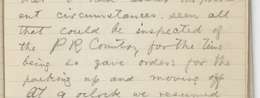 ent circumstances, seen all
that could be inspected of
the P.R. Country for the time
being so gave orders for the
packing up and moving off
At 9 o'clock we resumed